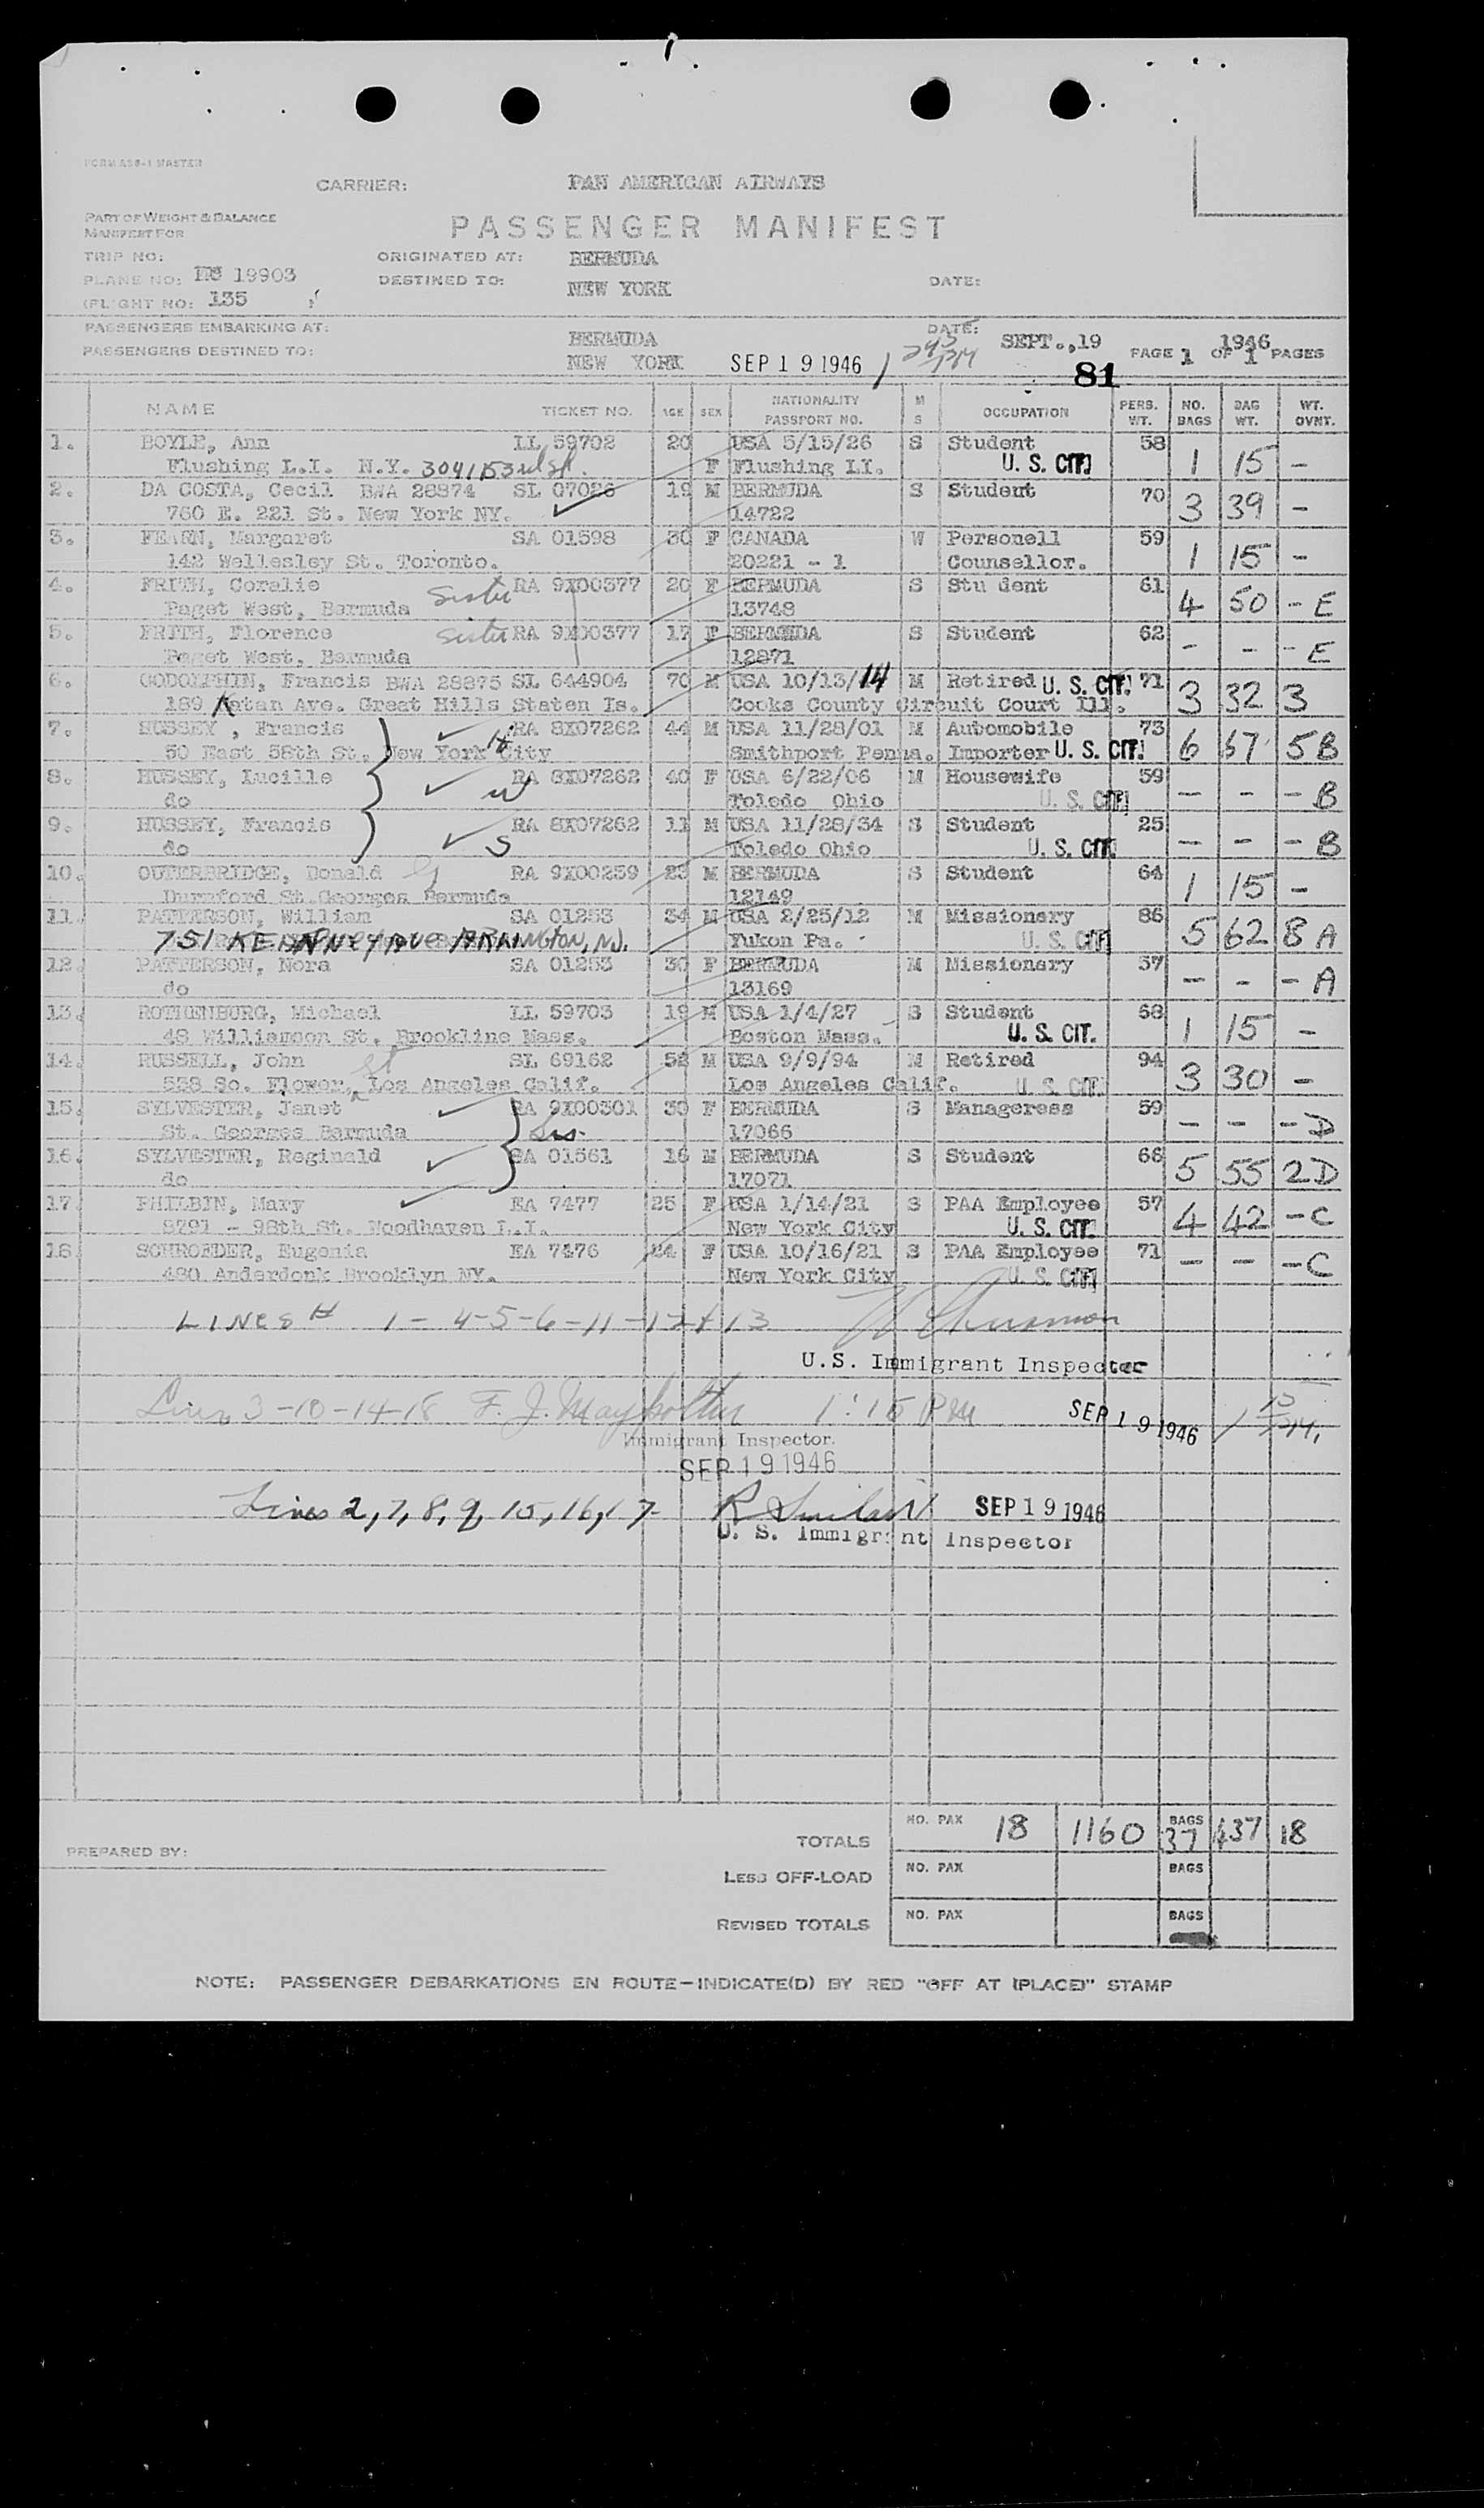 FORM AS8-1 MASTER
CARRIER: PAN AMERICAN AIRWAYS
PART OF WEIGHT & BALANCE
MANIFEST FOR
PASSENGER MANIFEST
TRIP NO: ORIGINATED AT: BERMUDA
PLANE NO: 19903 DESTINED TO: NEW YORK DATE:
FLIGHT NO: 135
PASSENGERS EMBARKING AT: BERMUDA DATE: SEPT.,19 1946
PASSENGERS DESTINED TO: NEW YORK SEP 19 1946 PAGE 1 OF 1 PAGES
81
NAME TICKET NO. AGE SEX NATIONALITY PASSPORT NO. M S OCCUPATION PERS. WT. NO. BAGS BAG WT. WT. OVNT.
1. BOYLE, Ann LL 59702 20 USA 5/15/26 S Student 58
Flushing L.I. N.Y. 3041 153rd St. F Flushing LI. U. S. CIT. 1 15 -
2. DA COSTA, Cecil BWA 28874 SL 07026 19 M BERMUDA S Student 70
760 E. 221 St. New York NY. 14722 3 39 -
3. FEARN, Margaret SA 01598 30 F CANADA W Personell 59
142 Wellesley St. Toronto. 20221 - 1 Counsellor. 1 15 -
4. FRITH, Coralie Sister RA 9X00377 20 F BERMUDA S Stu dent 61
Paget West, Bermuda 13748 4 50 - E
5. FRITH, Florence sister RA 9X00377 17 F BERMUDA S Student 62
Paget West, Bermuda 12871 - - - E
6. GODOLPHIN, Francis BWA 28875 SL 644904 70 M USA 10/13/14 M Retired U. S. CIT. 71
189 Katan Ave. Great Hills Staten Is. Cooks County Circuit Court Ill. 3 32 3
7. HUSSEY , Francis RA 8X07262 44 M USA 11/28/01 M Automobile 73
50 East 58th St. New York City H Smithport Penna. Importer U. S. CIT. 6 67 5B
8. HUSSEY, Lucille RA 8X07262 40 F USA 6/22/06 M Housewife 59
do W Toledo Ohio U. S. CIT. - - - B
9. HUSSEY, Francis RA 8X07262 11 M USA 11/28/34 S Student 25
do S Toledo Ohio U. S. CIT. - - - B
10. OUTERBRIDGE, Donald G RA 9X00259 23 M BERMUDA S Student 64
Durnford St. Georges Bermuda 12149 1 15 -
11. PATTERSON, William SA 01253 34 M USA 2/25/12 M Missionary 86
751 KEARNEY AVE ARLINGTON, NJ. Yukon Pa. U. S. CIT. 5 62 8 A
12. PATTERSON, Nora SA 01253 30 F BERMUDA M Missionary 57
do 13169 - - - A
13. ROTHENBURG, Michael LL 59703 19 M USA 1/4/27 S Student 68
48 Williamson St. Brookline Mass. Boston Mass. U. S. CIT. 1 15 -
14. RUSSELL, John SL 69162 52 M USA 9/9/94 M Retired 94
528 So. Flower, St Los Angeles Calif. Los Angeles Calif. U. S. CIT. 3 30 -
15. SYLVESTER, Janet RA 9X00301 30 F BERMUDA S Manageress 59
St. Georges Bermuda Sis. 17066 - - - D
16. SYLVESTER, Reginald SA 01561 16 M BERMUDA S Student 66
do 17071 5 55 2D
17. PHILBIN, Mary EA 7477 25 F USA 1/14/21 S PAA Employee 57
8791 - 98th St. Woodhaven L.I. New York City U. S. CIT. 4 42 - C
18. SCHROEDER, Eugenia EA 7476 24 F USA 10/16/21 S PAA Employee 71
480 Anderdonk Brooklyn NY. New York City U. S. CIT. - - - C
LINES # 1 - 4-5-6-11-12 + 13
U.S. Immigrant Inspector
Lines 3-10-14-18 F. J. 1:15 PM SEP 19 1946 1 15 PM.
Immigrant Inspector.
SEP 19 1946
Lines 2, 7, 8, 9, 15, 16, 17 R SEP 19 1946
U. S. Immigrant Inspector
TOTALS NO. PAX 18 1160 BAGS 37 437 18
PREPARED BY:
LESS OFF-LOAD NO. PAX BAGS
REVISED TOTALS NO. PAX BAGS
NOTE: PASSENGER DEBARKATIONS EN ROUTE-INDICATE(D) BY RED "OFF AT (PLACE)" STAMP